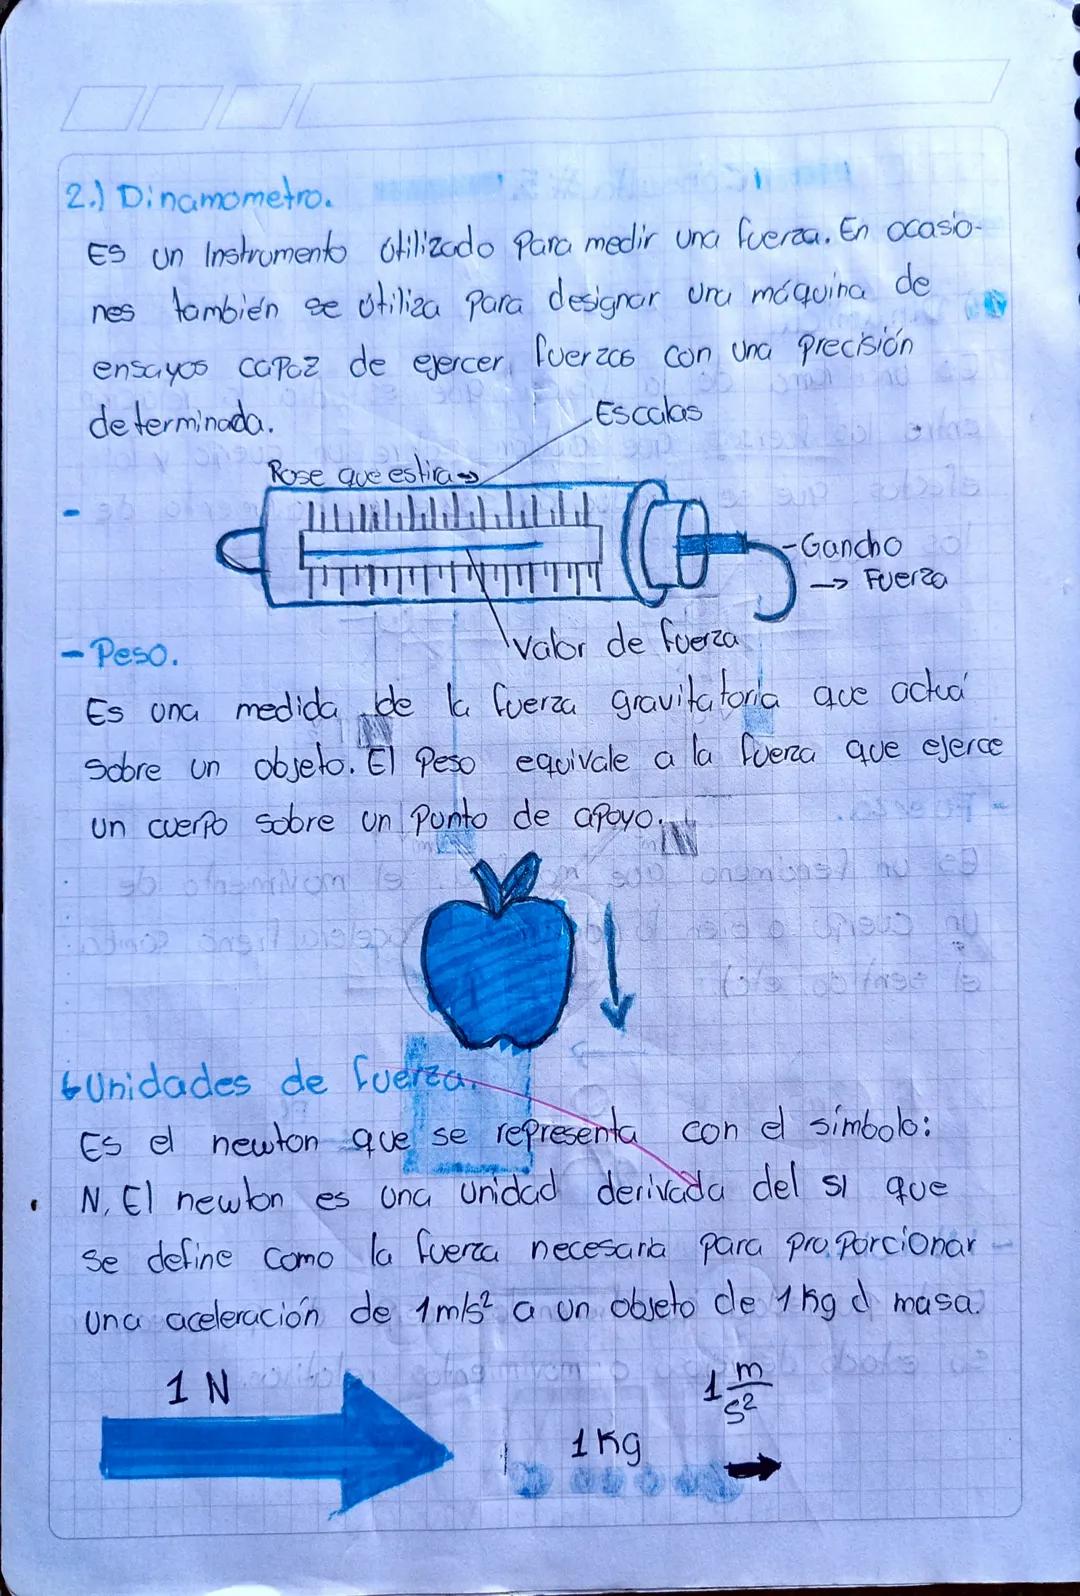 2.) Dinamometro.
Es un Instrumento Utilizado Para medir una fuerza. En ocasio-
nes también se utiliza para designar una máquina de
ensayos capaz de ejercer fuerzas con una precisión
determinada.
Escalas
Rose que estira →
-Gancho
→ Fuerza
Valor de fuerza
- Peso.
Es una medida de la fuerza gravitatoria que actuá
sobre un objeto. El Peso equivale a la fuerza que ejerce
un cuerpo sobre un punto de apoyo.
Unidades de fuerza.
Es el newton que se representa con el símbolo:
N. El newton es una unidad derivada del SI que
se define como la fuerza necesaria para proporcionar
una aceleración de 1m/s² a un objeto de 1kg d masa.
1 N
1 m/s²
1 Kg